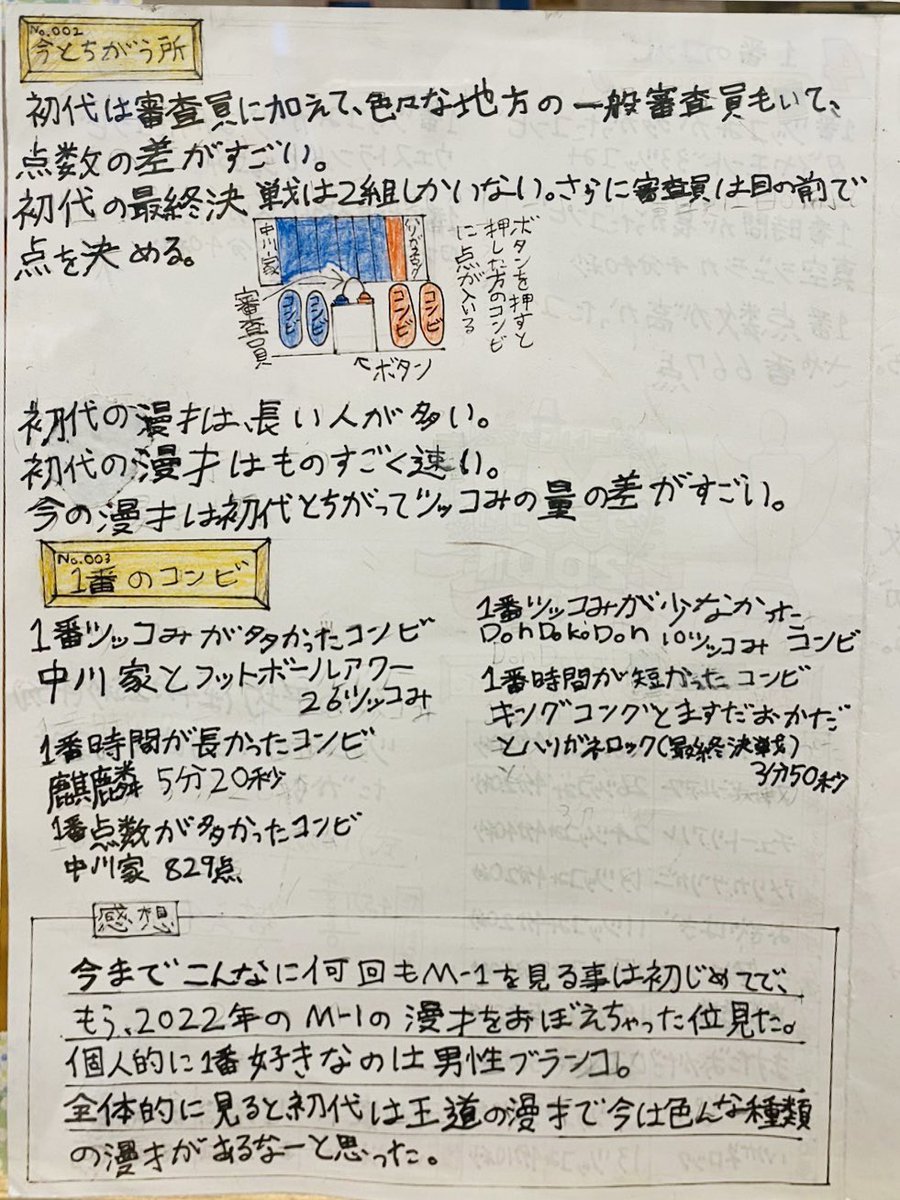 No.002
今とちがう所
初代は審査員に加えて、色々な地方の一般審査員もいて、
点数の差がすごい。
初代の最終決戦は2組しかいない。さらに審査員は目の前で
点を決める。
中川家
ハリガネロック
審査員
コンビ
コンビ
コンビ
コンビ
←ボタン
ボタンを押すと
押した方のコンビ
に点が入いる
初代の漫才は、長い人が多い。
初代の漫才はものすごく速い。
今の漫才は初代とちがってツッコみの量の差がすごい。
No.003
1番のコンビ
1番ツッコみが多かったコンビ
中川家とフットボールアワー
26ツッコみ
1番時間が長かったコンビ
麒麟 5分20秒
1番点数が多かったコンビ
中川家 829点
1番ツッコみが少なかった
DonDokoDon 10ツッコみ コンビ
1番時間が短かったコンビ
キングコングとますだおかだ
とハリガネロック(最終決戦)
3分50秒
感想
今までこんなに何回もM-1を見る事は初じめてで、
もう、2022年のM-1の漫才をおぼえちゃった位見た。
個人的に1番好きなのは男性ブランコ。
全体的に見ると初代は王道の漫才で今は色んな種類
の漫才があるなーと思った。